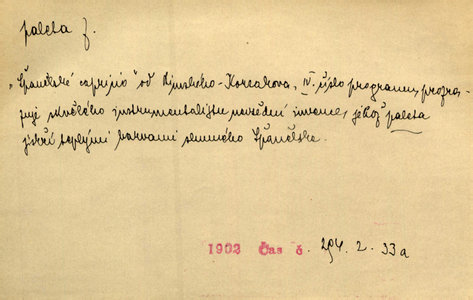 paleta f.
„Španělské caprijio" od Rimského-Korsakova, IV. číslo programu, progra-
zuje skvělého instrumentalistu nevšední invence, jehož paleta
jiskří teplými barvami slunného Španělska.
1902 Čas č. 294. 2. 33a